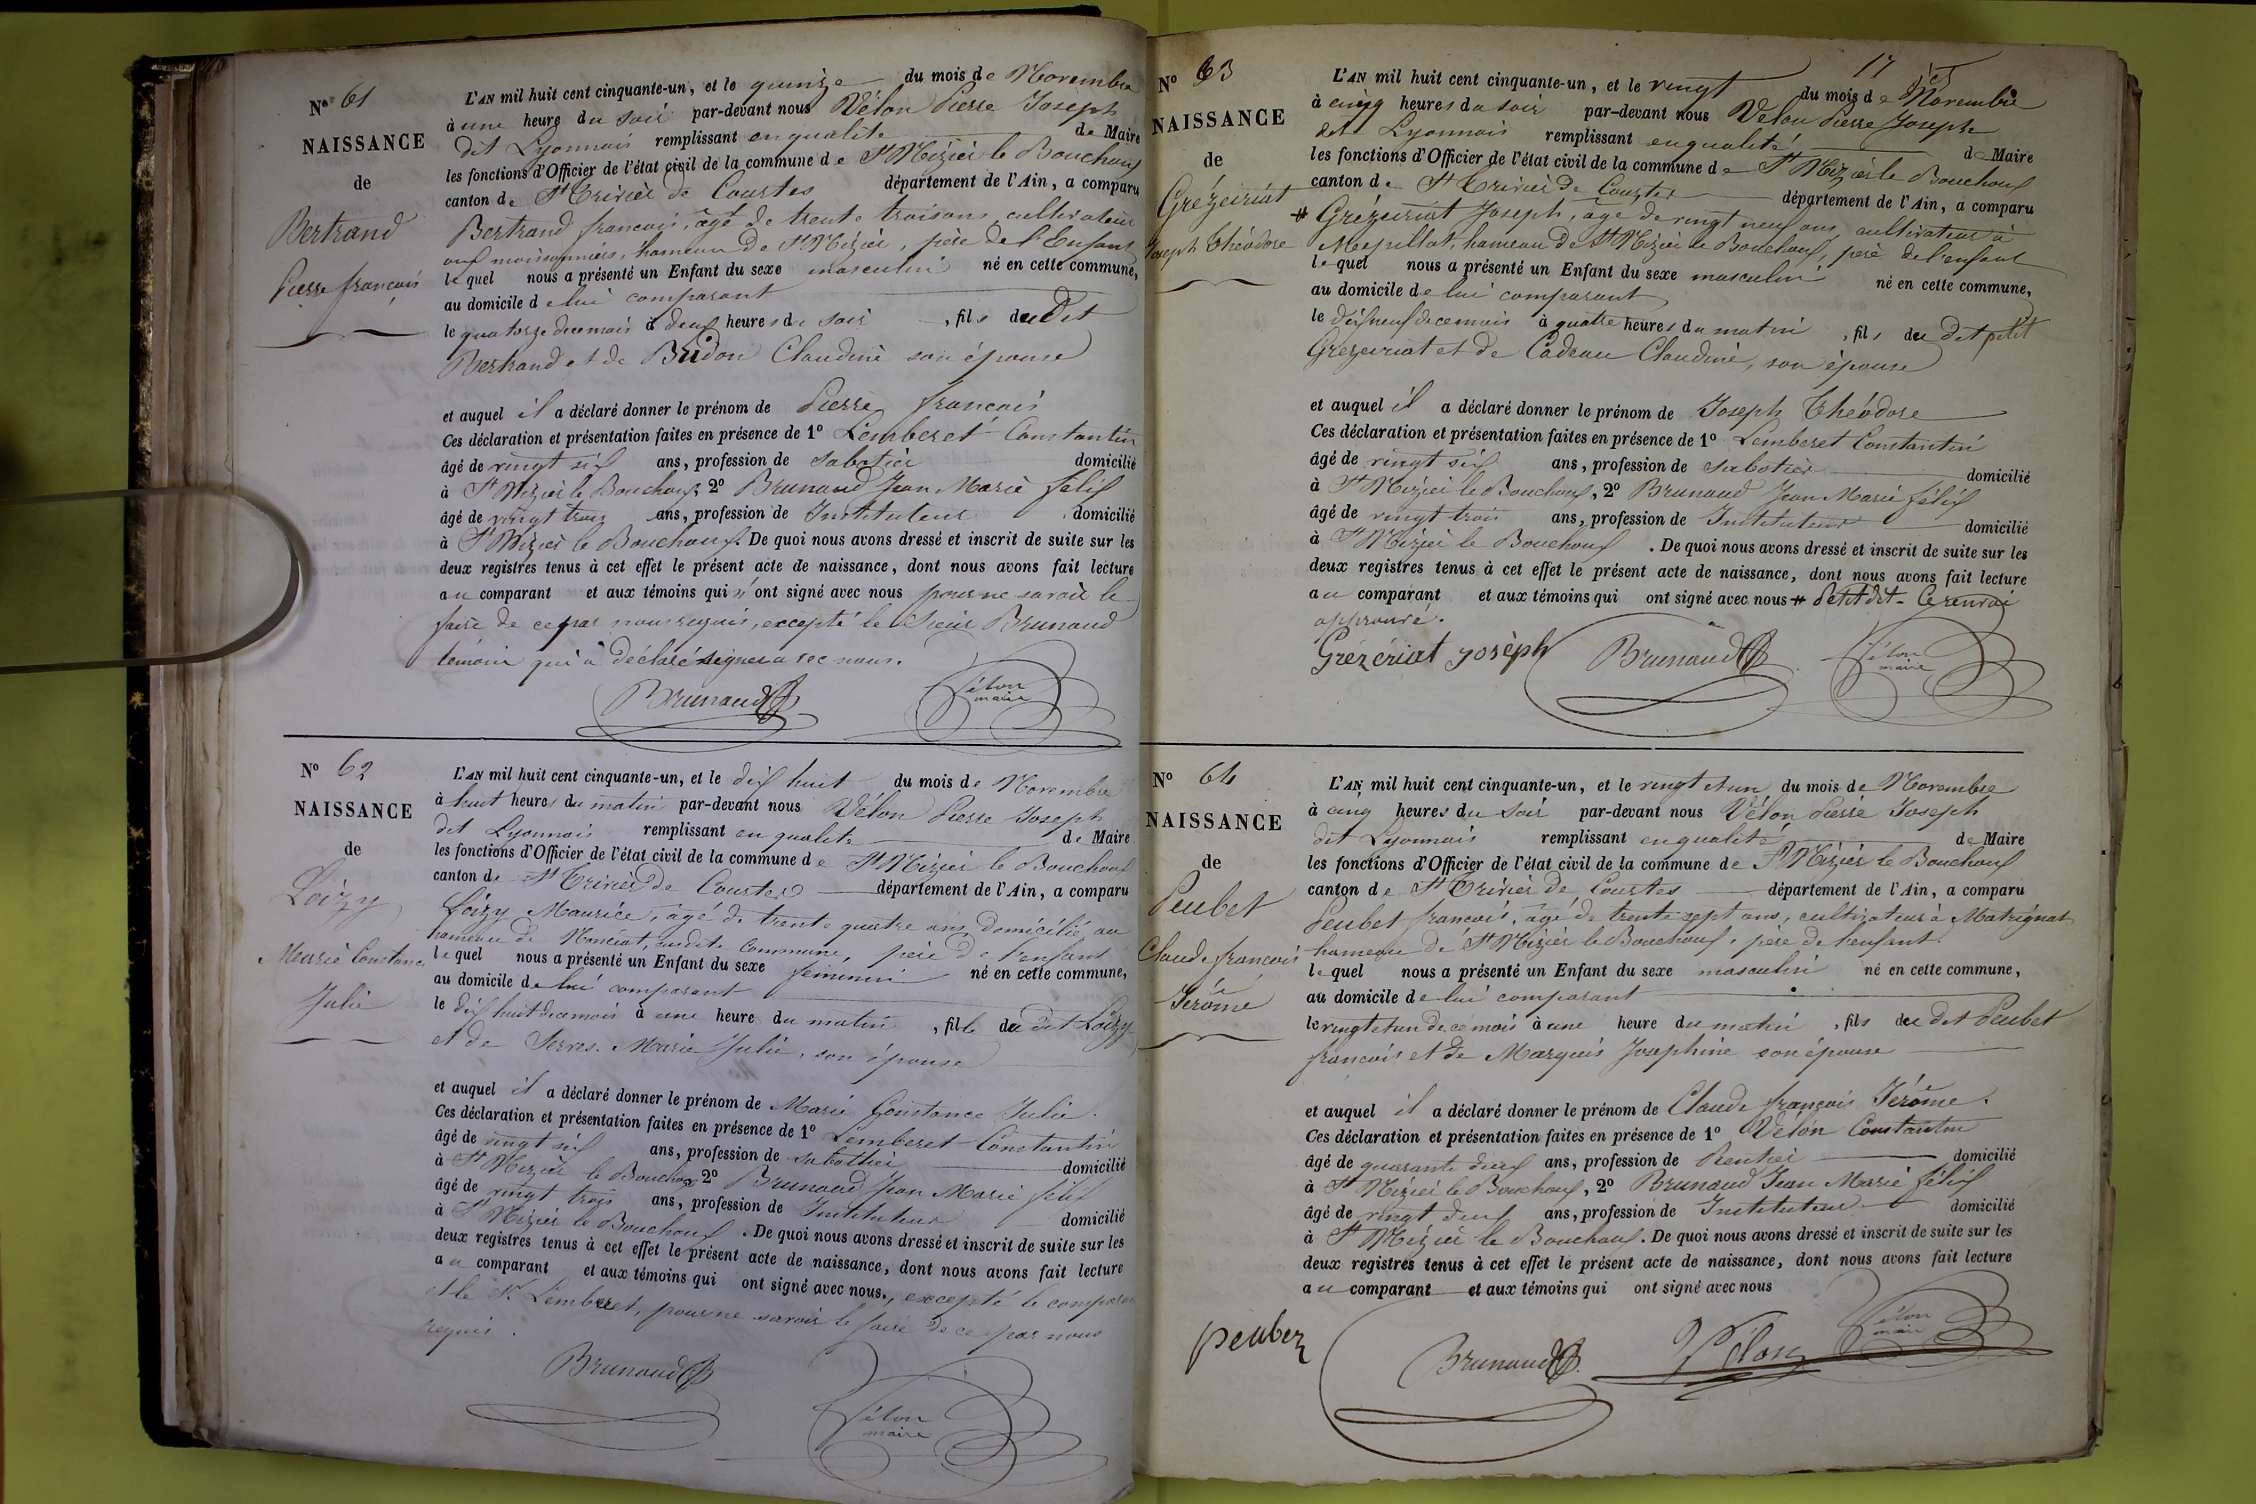 Nº 61
NAISSANCE
de
Bertrand
Pierre françois
L'AN mil huit cent cinquante-un, et le quinze du mois de Novembre
à une heure du soir par-devant nous Vélon Pierre Joseph
dit Lyonnais remplissant en qualité de Maire
les fonctions d'Officier de l'état civil de la commune de St Nizier le Bouchoux
canton de St Trivier de Courtes département de l'Ain, a comparu
Bertrand françois, âgé de trente trois ans, cultivateur
aux moissonniers, hameau de St Nizier, père de l'Enfant
lequel nous a présenté un Enfant du sexe masculin né en cette commune,
au domicile de lui comparant
le quatorze du ce mois à deux heures du soir, fils du dit
Bertrand et de Bridon Claudine son épouse
et auquel il a déclaré donner le prénom de Pierre françois
Ces déclaration et présentation faites en présence de 1º Lemberet Constantin
âgé de vingt six ans, profession de sabotier domicilié
à St Nizier le Bouchoux, 2º Brunaud Jean Marie félix
âgé de vingt trois ans, profession de Instituteur domicilié
à St Nizier le Bouchoux. De quoi nous avons dressé et inscrit de suite sur les
deux registres tenus à cet effet le présent acte de naissance, dont nous avons fait lecture
au comparant et aux témoins qui n'ont signé avec nous pour ne savoir le
faire de ce par nous requis, excepté le Sieur Brunaud
témoin qui a déclaré signer avec nous.
Brunaud
Vélon
maire
Nº 62
NAISSANCE
de
Loizy
Marie Constance
Julie
L'AN mil huit cent cinquante-un, et le dix huit du mois de Novembre
à huit heures du matin par-devant nous Vélon Pierre Joseph
dit Lyonnais remplissant en qualité de Maire
les fonctions d'Officier de l'état civil de la commune de St Nizier le Bouchoux
canton de St Trivier de Courtes département de l'Ain, a comparu
Loizy Maurice, âgé de trente quatre ans, Domicilié au
hameau de Monciat, susdite commune, père de l'enfant
lequel nous a présenté un Enfant du sexe feminin né en cette commune,
au domicile de lui comparant
le dix huit de ce mois à une heure du matin, fille du dit Loizy
et de Serres Marie Julie, son épouse
et auquel il a déclaré donner le prénom de Marie Constance Julie.
Ces déclaration et présentation faites en présence de 1º Lemberet Constantin
âgé de vingt six ans, profession de sabottier domicilié
à St Nizier le Bouchoux 2º Brunaud Jean Marie félix
âgé de vingt trois ans, profession de Instituteur domicilié
à St Nizier le Bouchoux. De quoi nous avons dressé et inscrit de suite sur les
deux registres tenus à cet effet le présent acte de naissance, dont nous avons fait lecture
au comparant et aux témoins qui ont signé avec nous., excepté le comparant
et le Sr Lemberet, pour ne savoir le faire de ce par nous
requis.
Brunaud
Vélon
maire
17
Nº 63
NAISSANCE
de
Grézeiriat
Joseph Théodore
L'AN mil huit cent cinquante-un, et le vingt du mois de Novembre
à cinq heures du soir par-devant nous Vélon Pierre Joseph
dit Lyonnais remplissant en qualité de Maire
les fonctions d'Officier de l'état civil de la commune de St Nizier le Bouchoux
canton de St Trivier de Courtes département de l'Ain, a comparu
# Grézeiriat Joseph, âgé de vingt neuf ans, cultivateur à
Mespillat, hameau de St Nizier le Bouchoux, père de l'enfant
lequel nous a présenté un Enfant du sexe masculin né en cette commune,
au domicile de lui comparant
le dix neuf de ce mois à quatre heures du matin, fils du dit petit
Grezeiriat et de Cadeau Claudine, son épouse
et auquel il a déclaré donner le prénom de Joseph Théodore
Ces déclaration et présentation faites en présence de 1º Lemberet Constantin
âgé de vingt six ans, profession de sabotier domicilié
à St Nizier le Bouchoux, 2º Brunaud Jean Marie félix
âgé de vingt trois ans, profession de Instituteur domicilié
à St Nizier le Bouchoux. De quoi nous avons dressé et inscrit de suite sur les
deux registres tenus à cet effet le présent acte de naissance, dont nous avons fait lecture
au comparant et aux témoins qui ont signé avec nous # Petit dit - Ce renvoi
approuvé.
Grézériat yosèph
Brunaud
Vélon
maire
Nº 64
NAISSANCE
de
Peubet
Claude françois
Jérôme
L'AN mil huit cent cinquante-un, et le vingt et un du mois de Novembre
à cinq heures du soir par-devant nous Vélon Pierre Joseph
dit Lyonnais remplissant en qualité de Maire
les fonctions d'Officier de l'état civil de la commune de St Nizier le Bouchoux
canton de St Trivier de Courtes département de l'Ain, a comparu
Peubet françois, âgé de trente sept ans, cultivateur à Matrignat
hameau de St Nizier le Bouchoux, père de l'enfant.
lequel nous a présenté un Enfant du sexe masculin né en cette commune,
au domicile de lui comparant
le vingt et un de ce mois à une heure du matin, fils du dit Peubet
françois et de Marquis Josephine son épouse
et auquel il a déclaré donner le prénom de Claude françois Jérôme.
Ces déclaration et présentation faites en présence de 1º Vélon Constantin
âgé de quarante deux ans, profession de Rentier domicilié
à St Nizier le Bouchoux, 2º Brunaud Jean Marie félix
âgé de vingt deux ans, profession de Instituteur domicilié
à St Nizier le Bouchoux. De quoi nous avons dressé et inscrit de suite sur les
deux registres tenus à cet effet le présent acte de naissance, dont nous avons fait lecture
au comparant et aux témoins qui ont signé avec nous
peubez
Brunaud
Vélon
Vélon
maire